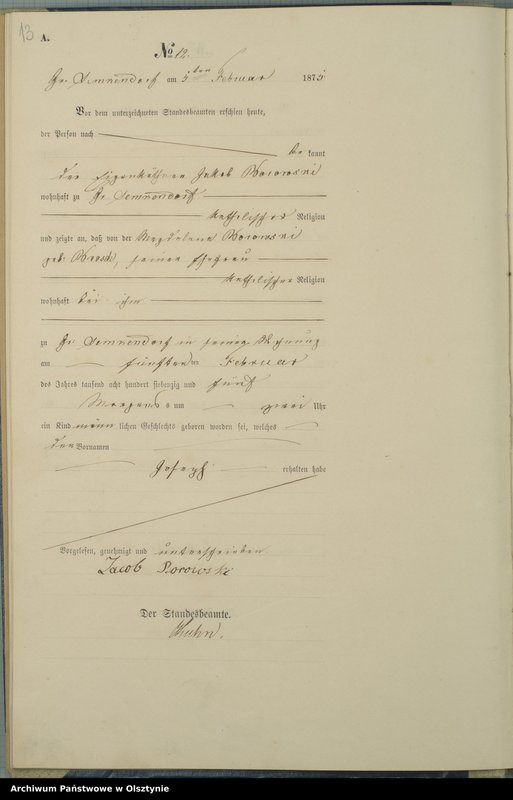 13
A.
No 12.
Gr. Lemkendorf am 5 ten Februar 1875
Vor dem unterzeichneten Standesbeamten erschien heute,
der Person nach
be kannt
der Eigenkäthner Jakob
wohnhaft zu Gr Lemkendorf
katholischer Religion
und zeigte an, daß von der Magdalena
geb. seiner Ehefrau
katholischer Religion
wohnhaft bei ihm
zu Gr Lemkendorf in seiner Wohnung
am fünften Februar
des Jahres tausend acht hundert siebenzig und fünf
Morgens um zwei Uhr
ein Kind männ lichen Geschlechts geboren worden sei, welches
den Vornamen
Joseph erhalten habe
Vorgelesen, genehmigt und unterschrieben
Jacob Borowski
Der Standesbeamte.
Archiwum Państwowe w Olsztynie